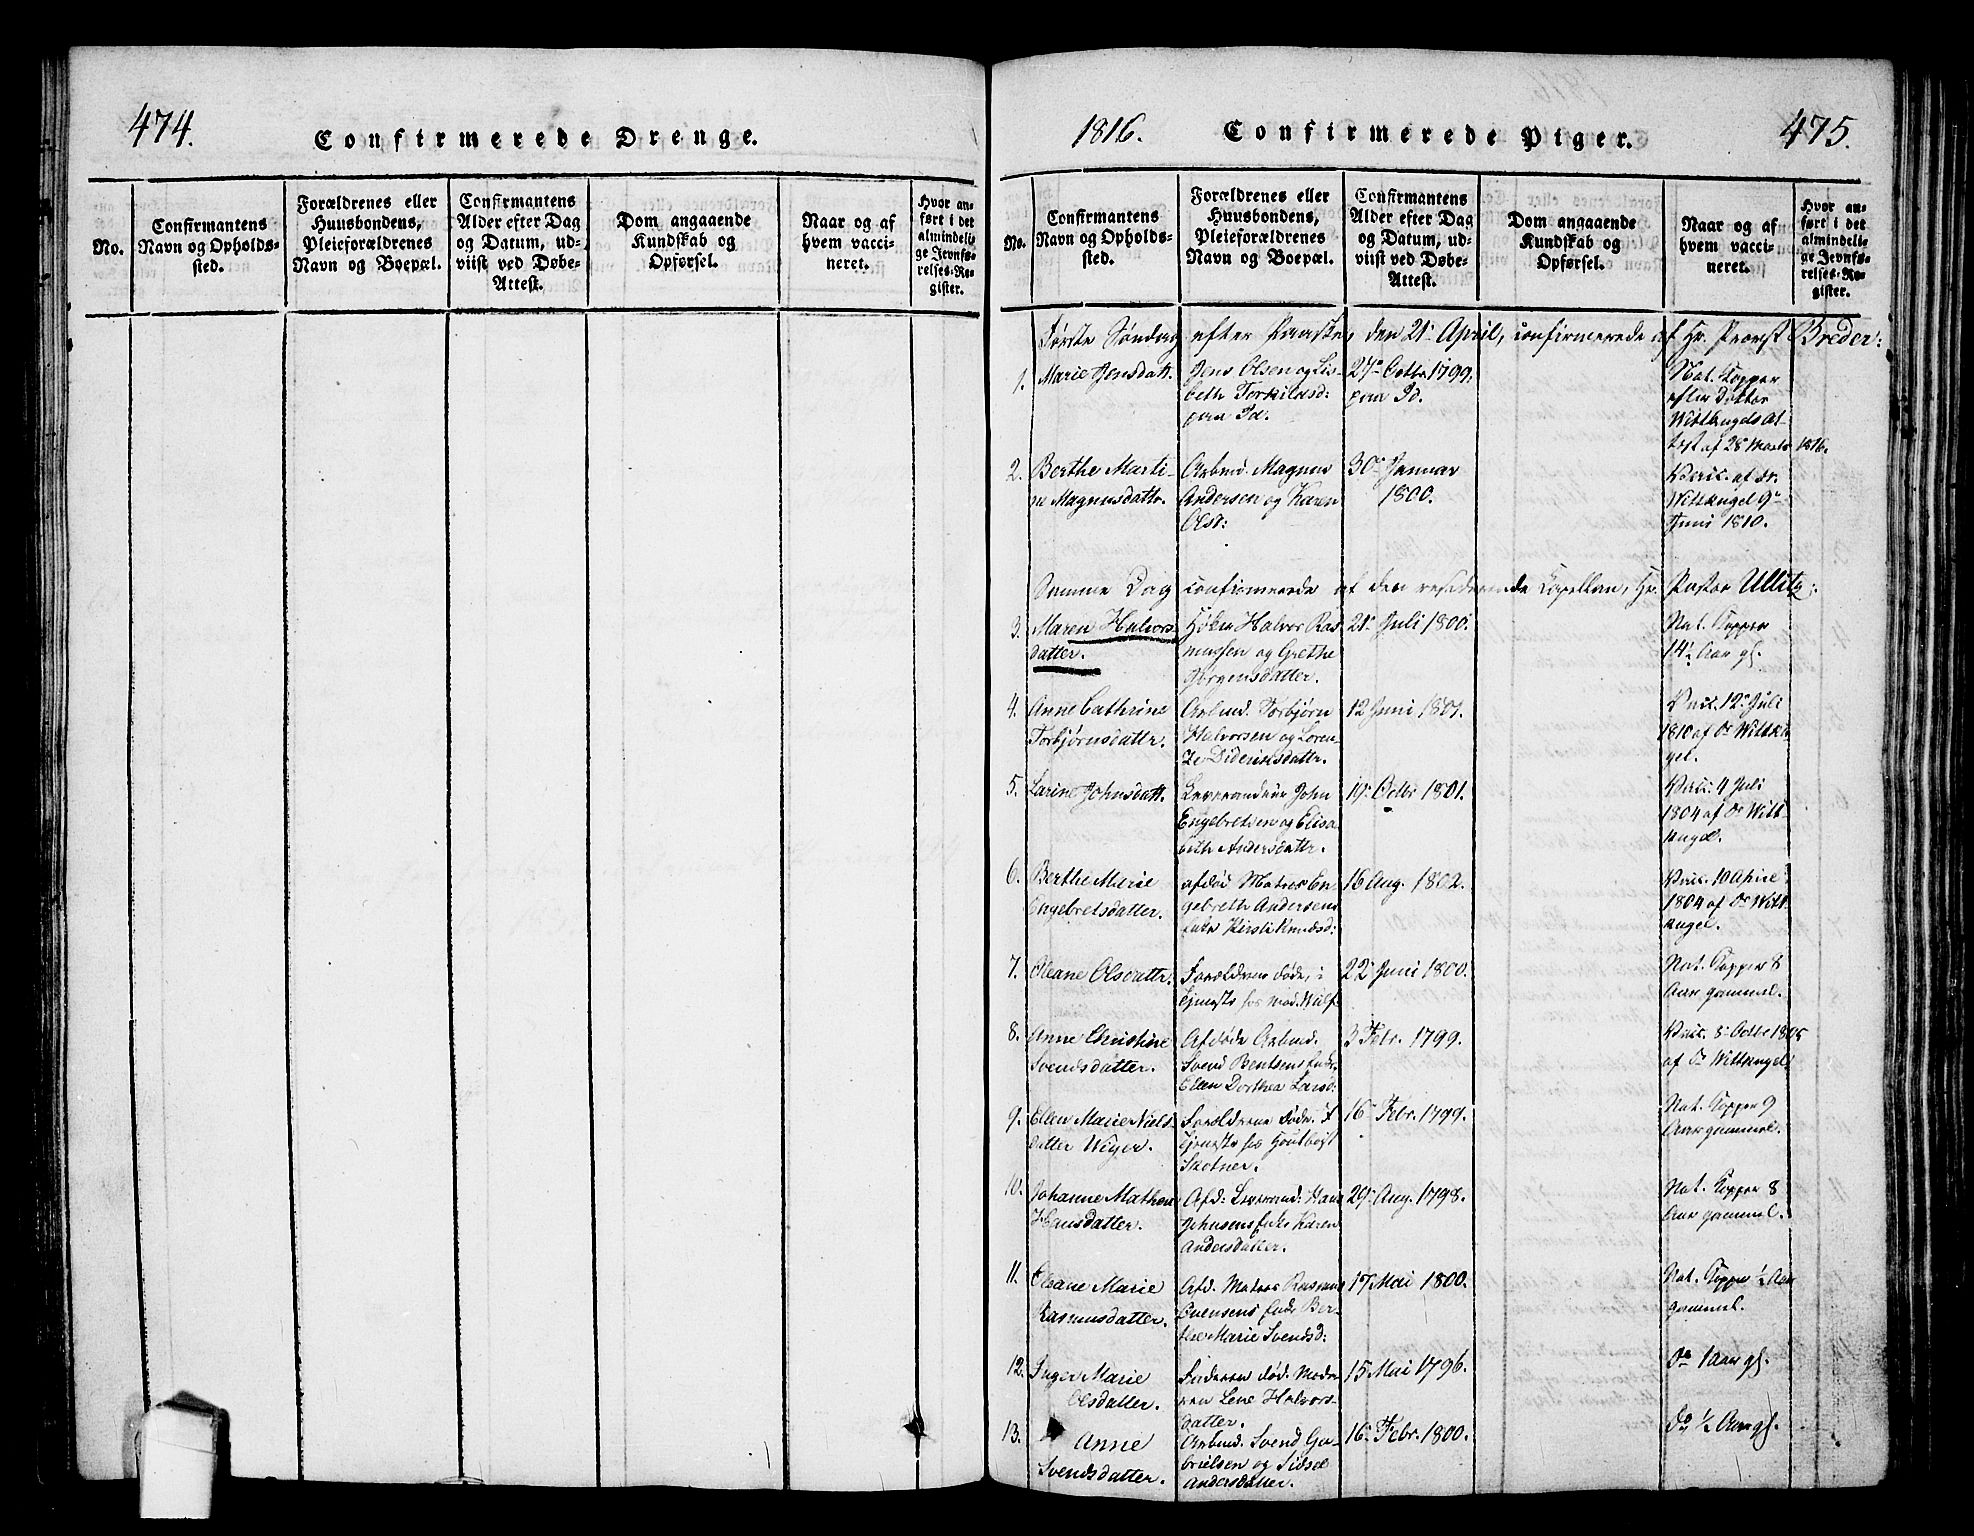 474.
Confirmerede Drenge.
No.
Confirmantens
Navn og Opholds-
sted.
Forældrenes eller
Huusbondens,
Pleieforældrenes
Navn og Boepæl.
Confirmantens
Alder efter Dag
og Datum, ud-
viist ved Døbe-
Attest.
Dom angaaende
Kundskab og
Opførsel.
Naar og af
hvem vacci-
neret.
Hvor an-
ført i det
almindeli-
ge Jevnfø-
relses-Re-
gister.
1816.
Confirmerede Piger.
475.
No.
Confirmantens
Navn og Opholds-
sted.
Forældrenes eller
Huusbondens,
Pleieforældrenes
Navn og Boepæl.
Confirmantens
Alder efter Dag
og Datum, ud-
viist ved Døbe-
Attest.
Dom angaaende
Kundskab og
Opførsel.
Naar og af
hvem vacci-
neret.
Hvor an-
ført i det
almindeli-
ge Jevnfø-
relses-Re-
gister.
Første Søndag efter Paaske, den 21 April, confirmerede af Hr. Provst Breder:
1. Marie Jensdatt.
Jens Olsen og Lis-
beth Torkildsd:
paa Id.
27 Octbr 1799.
paa Id.
Nat. Kopper
efter Doctor
Wittkugels At-
test af 28 Marts 1816.
2. Berthe Marti-
ne Magnusdattr.
Arbmd. Magnus
Andersen og Karen
Olsd:
30 Januar
1800.
Vacc. af Dr.
Wittkugel 9
Juni 1810.
Samme Dag confirmerede af den residerende Capellan, Hr. Pastor Ullitz:
3. Maren Halvors-
datter.
Høker Halvor Ras-
mussen og Grethe
Jørgensdatter.
21 Juli 1800.
Nat. Kopper
14½ Aar gl.
4. Anne Cathrine
Torbjørnsdattr.
Arbmd. Torbjørn
Halvorsen og Loren-
ze Dideriksdattr.
12 Juni 1801.
Vacc. 12 Juli
1810 af Dr Wittku-
gel.
5. Larine Johnsdatt.
John
Engebretsen og Elisa-
beth Andersdattr.
19 Octbr 1801.
Vacc. 4 Juli
1804 af Dr Witt-
kugel.
6. Berthe Marie
Engebretsdatter.
afdød Matros En-
gebreth Andersens
Enke Kirsti Knudsd:
16 Aug. 1802.
Vacc. 10 April
1804 af Dr Witt-
kugel.
7. Oleane Olsdattr.
Forældrene døde, i
Tjeneste hos Mad. Wulf.
22 Juni 1800.
Nat. Kopper 8
Aar gammel.
8. Anne Christine
Svendsdatter.
Afdøde Arbmd.
Svend Bentsens Enke
Ellen Dorthea Larsd:
3 Febr. 1799.
Vacc. 8 Octbr 1805
af Dr Wittkugel
9. Ellen Marie Niels-
datter Weyer.
Forældrene døde. I
Tjeneste hos
Skotner.
16 Febr. 1799.
Nat. Kopper 9
Aar gammel.
10. Johanne Mathea
Hansdatter.
Afd: Hans
Johnsens Enke Karen
Andersdatter.
29 Aug. 1798.
Nat. Kopper 8
Aar gammel.
11. Oleane Marie
Rasmusdatter.
Afd. Matros Rasmus
Evensens Enke Ber-
the Marie Svendsd:
17 Mai 1800.
Nat. Kopper ½ Aar
gammel.
12. Inger Marie
Olsdatter.
Faderen død. Mode-
ren Lene Halvors-
datter.
15 Mai 1796.
Do 1 Aar gl.
13. Anne
Svendsdatter.
Arbmd. Svend Ga-
brielsen og Sidsel
Andersdatter.
16 Febr. 1800.
Do ½ Aar gl.